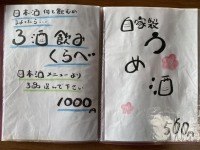 日本酒何を飲もうか
迷ったら…
3酒飲み
くらべ
日本酒メニューより
3品選んで下さい
1000円
自家製
うめ酒
560円